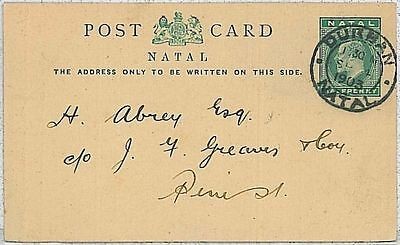 POST CARD
NATAL
THE ADDRESS ONLY TO BE WRITTEN ON THIS SIDE.
NATAL
HALFPENNY
DURBAN
1905
NATAL
H. Abrey Esq.
c/o J. F. Greaves & Coy.
Pine St.